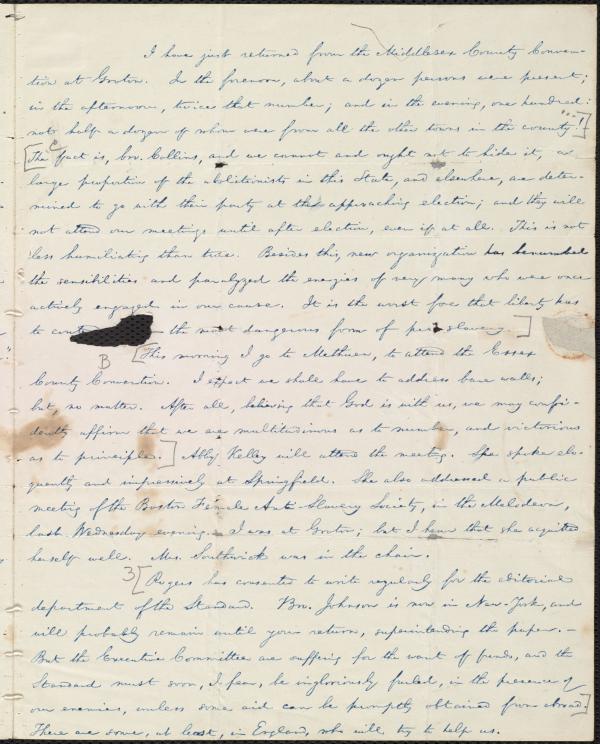 I have just returned from the Middlesex County Conven-
tion at Groton. In the forenoon, about a dozen persons were present;
in the afternoon, twice that number; and in the evening, one hundred:
not half a dozen of whom were from all the other towns in the county!]
[The fact is, bro. Collins, and we cannot and ought not to hide it, a
large proportion of the abolitionists in this State, and elsewhere, are deter-
mined to go with their party at the approaching election; and they will
not attend our meetings until after election, even if at all. This is not
less humiliating than true. Besides this, new organization has benumbed
the sensibilities and paralyzed the energies of very many who were once
actively engaged in our cause. It is the worst foe that liberty has
to the most dangerous form of pro-slavery.]
B [This morning I go to Methuen, to attend the Essex
County Convention. I expect we shall have to address bare walls;
but, no matter. After all, believing that God is with us, we may confi-
dently affirm that we are multitudinous as to number, and victorious
as to principle.] Abby Kelley will attend the meeting. She spoke elo-
quently and impressively at Springfield. She also addressed a public
meeting of the Boston Female Anti-Slavery Society, in the Melodeon,
last Wednesday evening. I was at Groton; but I hear that she acquitted
herself well. Mrs. Southwick was in the chair.
3[Rogers has consented to write regularly for the editorial
department of the Standard. Bro. Johnson is now in New-York, and
will probably remain until your return, superintending the paper. –
But the Executive Committee are suffering for the want of funds, and the
Standard must soon, I fear, be ingloriously furled, in the presence of
our enemies, unless some aid can be promptly obtained from abroad.]
There are some, at least, in England, who will try to help us.